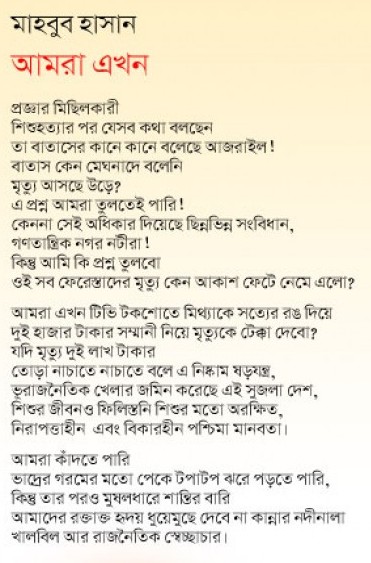 মাহবুব হাসান
আমরা এখন
প্রজ্ঞার মিছিলকারী
শিশুহত্যার পর যেসব কথা বলছেন
তা বাতাসের কানে কানে বলেছে আজরাইল!
বাতাস কেন মেঘনাদে বলেনি
মৃত্যু আসছে উড়ে?
এ প্রশ্ন আমরা তুলতেই পারি!
কেননা সেই অধিকার দিয়েছে ছিন্নভিন্ন সংবিধান,
গণতান্ত্রিক নগর নটীরা!
কিন্তু আমি কি প্রশ্ন তুলবো
ওই সব ফেরেস্তাদের মৃত্যু কেন আকাশ ফেটে নেমে এলো?
আমরা এখন টিভি টকশোতে মিথ্যাকে সত্যের রঙ দিয়ে
দুই হাজার টাকার সম্মানী নিয়ে মৃত্যুকে টেক্কা দেবো?
যদি মৃত্যু দুই লাখ টাকার
তোড়া নাচাতে নাচাতে বলে এ নিষ্কাম ষড়যন্ত্র,
ভূরাজনৈতিক খেলার জমিন করেছে এই সুজলা দেশ,
শিশুর জীবনও ফিলিস্তনি শিশুর মতো অরক্ষিত,
নিরাপত্তাহীন এবং বিকারহীন পশ্চিমা মানবতা।
আমরা কাঁদতে পারি
ভাদ্রের গরমের মতো পেকে টপাটপ ঝরে পড়তে পারি,
কিন্তু তার পরও মুষলধারে শান্তির বারি
আমাদের রক্তাক্ত হৃদয় ধুয়েমুছে দেবে না কান্নার নদীনালা
খালবিল আর রাজনৈতিক স্বেচ্ছাচার।